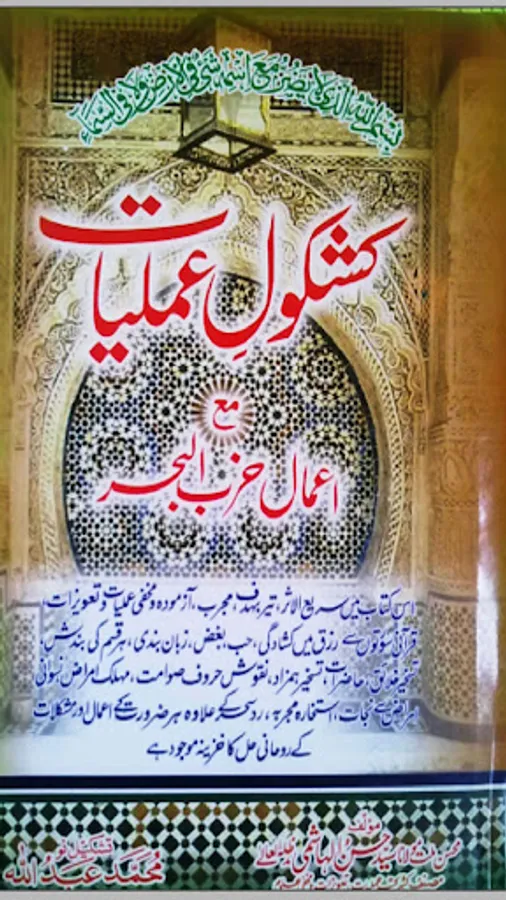 بسم اللہ الذی لا یضر مع اسمہ شئ فی الارض ولا فی السماء
کشکولِ عملیات
مع
اعمال حزب البحر
اس کتاب میں سریع الاثر، تیر بہدف، مجرب، آزمودہ و مخفی عملیات و تعویزات،
قرآنی سورتوں سے رزق میں کشادگی، حب، بغض، زبان بندی، ہر قسم کی بندش،
تسخیر خلائق، حاضرات، تسخیر ہمزاد، نقوش حروف صوامت، مہلک امراض نسوانی
امراض سے نجات، استخارہ مجربہ، رد سحر کے علاوہ ہر ضرورت کے اعمال اور مشکلات
کے روحانی حل کا خزینہ موجود ہے
مؤلف
سید حسن الہاشمی
تشکیل نو
محمد عبد اللہ